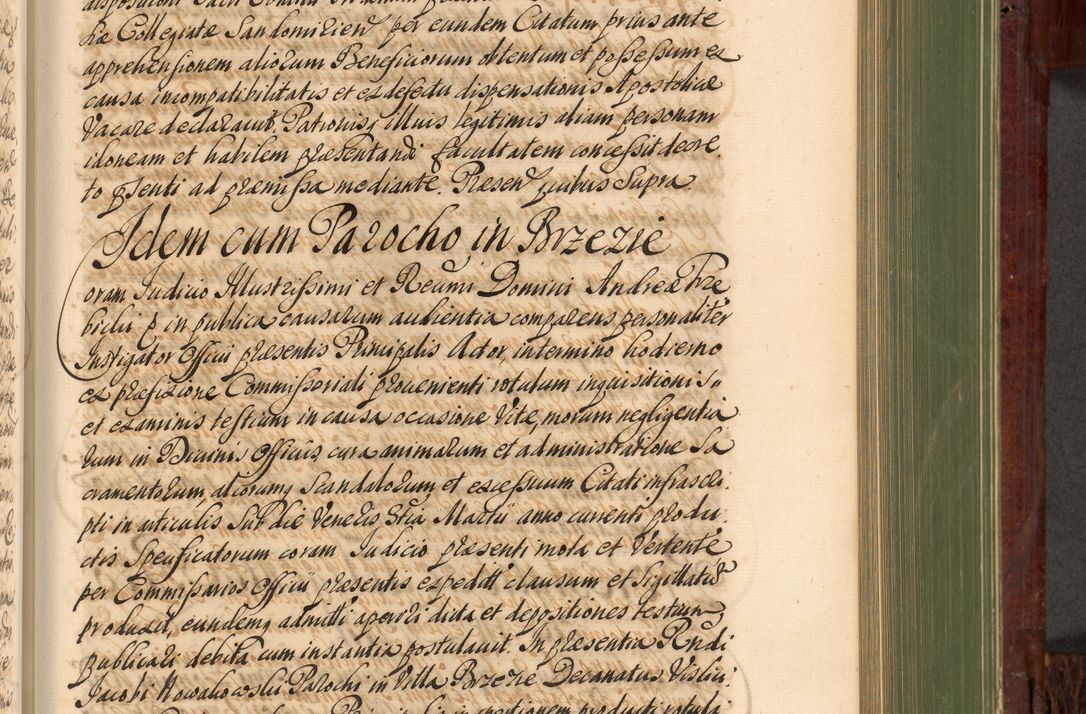 liæ Collegiatæ Sandomirien̄ per eundem Citatum prius ante
apprehensionem aliorum Beneficiorum obtentum et possessum ex
causa incompatibilitatis et ex defectu dispensationis Apostolicæ
Vacare declaravit, Patronisq̨ illius legitimis aliam personam
idoneam et habilem præsentandi facultatem concessit decre,
to pn̄senti ad præmissa mediante. Præsen̄ quibus Supra
Idem cum Parocho in Brzezie
Coram Judicio Illustrissimi et Reūmi Domini Andreæ Tre
bicki p in publica causarum audientia comparens personaliter
Instigator Officii præsentis Principalis Actor, in termino hodierno
ex præfixione Commissoriali provenienti rotulum inquisitionis,,
et examinis testium in causa occasione Vitæ, morum negligentia
rum in Divinis Officiis cura animarum et administratione Sa
cramentorum, aliorumq̨ Scandalorum et excessuum Citati infrascri
pti in articulis Sub die Veneris 3tia Martii anno currenti produ,
ctis Specificatorum coram Judicio præsenti mota et Vertente
per Commissarios Officii præsentis expedit clausum et Sigillatum
produxit, eundemq̨ admitti aperiri dicta et depositiones testium
publicari debita cum instantia postulavit. In præsentia Rn̄di
Jacobi Kowalkowski Parochi in Villa Brzezie Decanatus Vislici